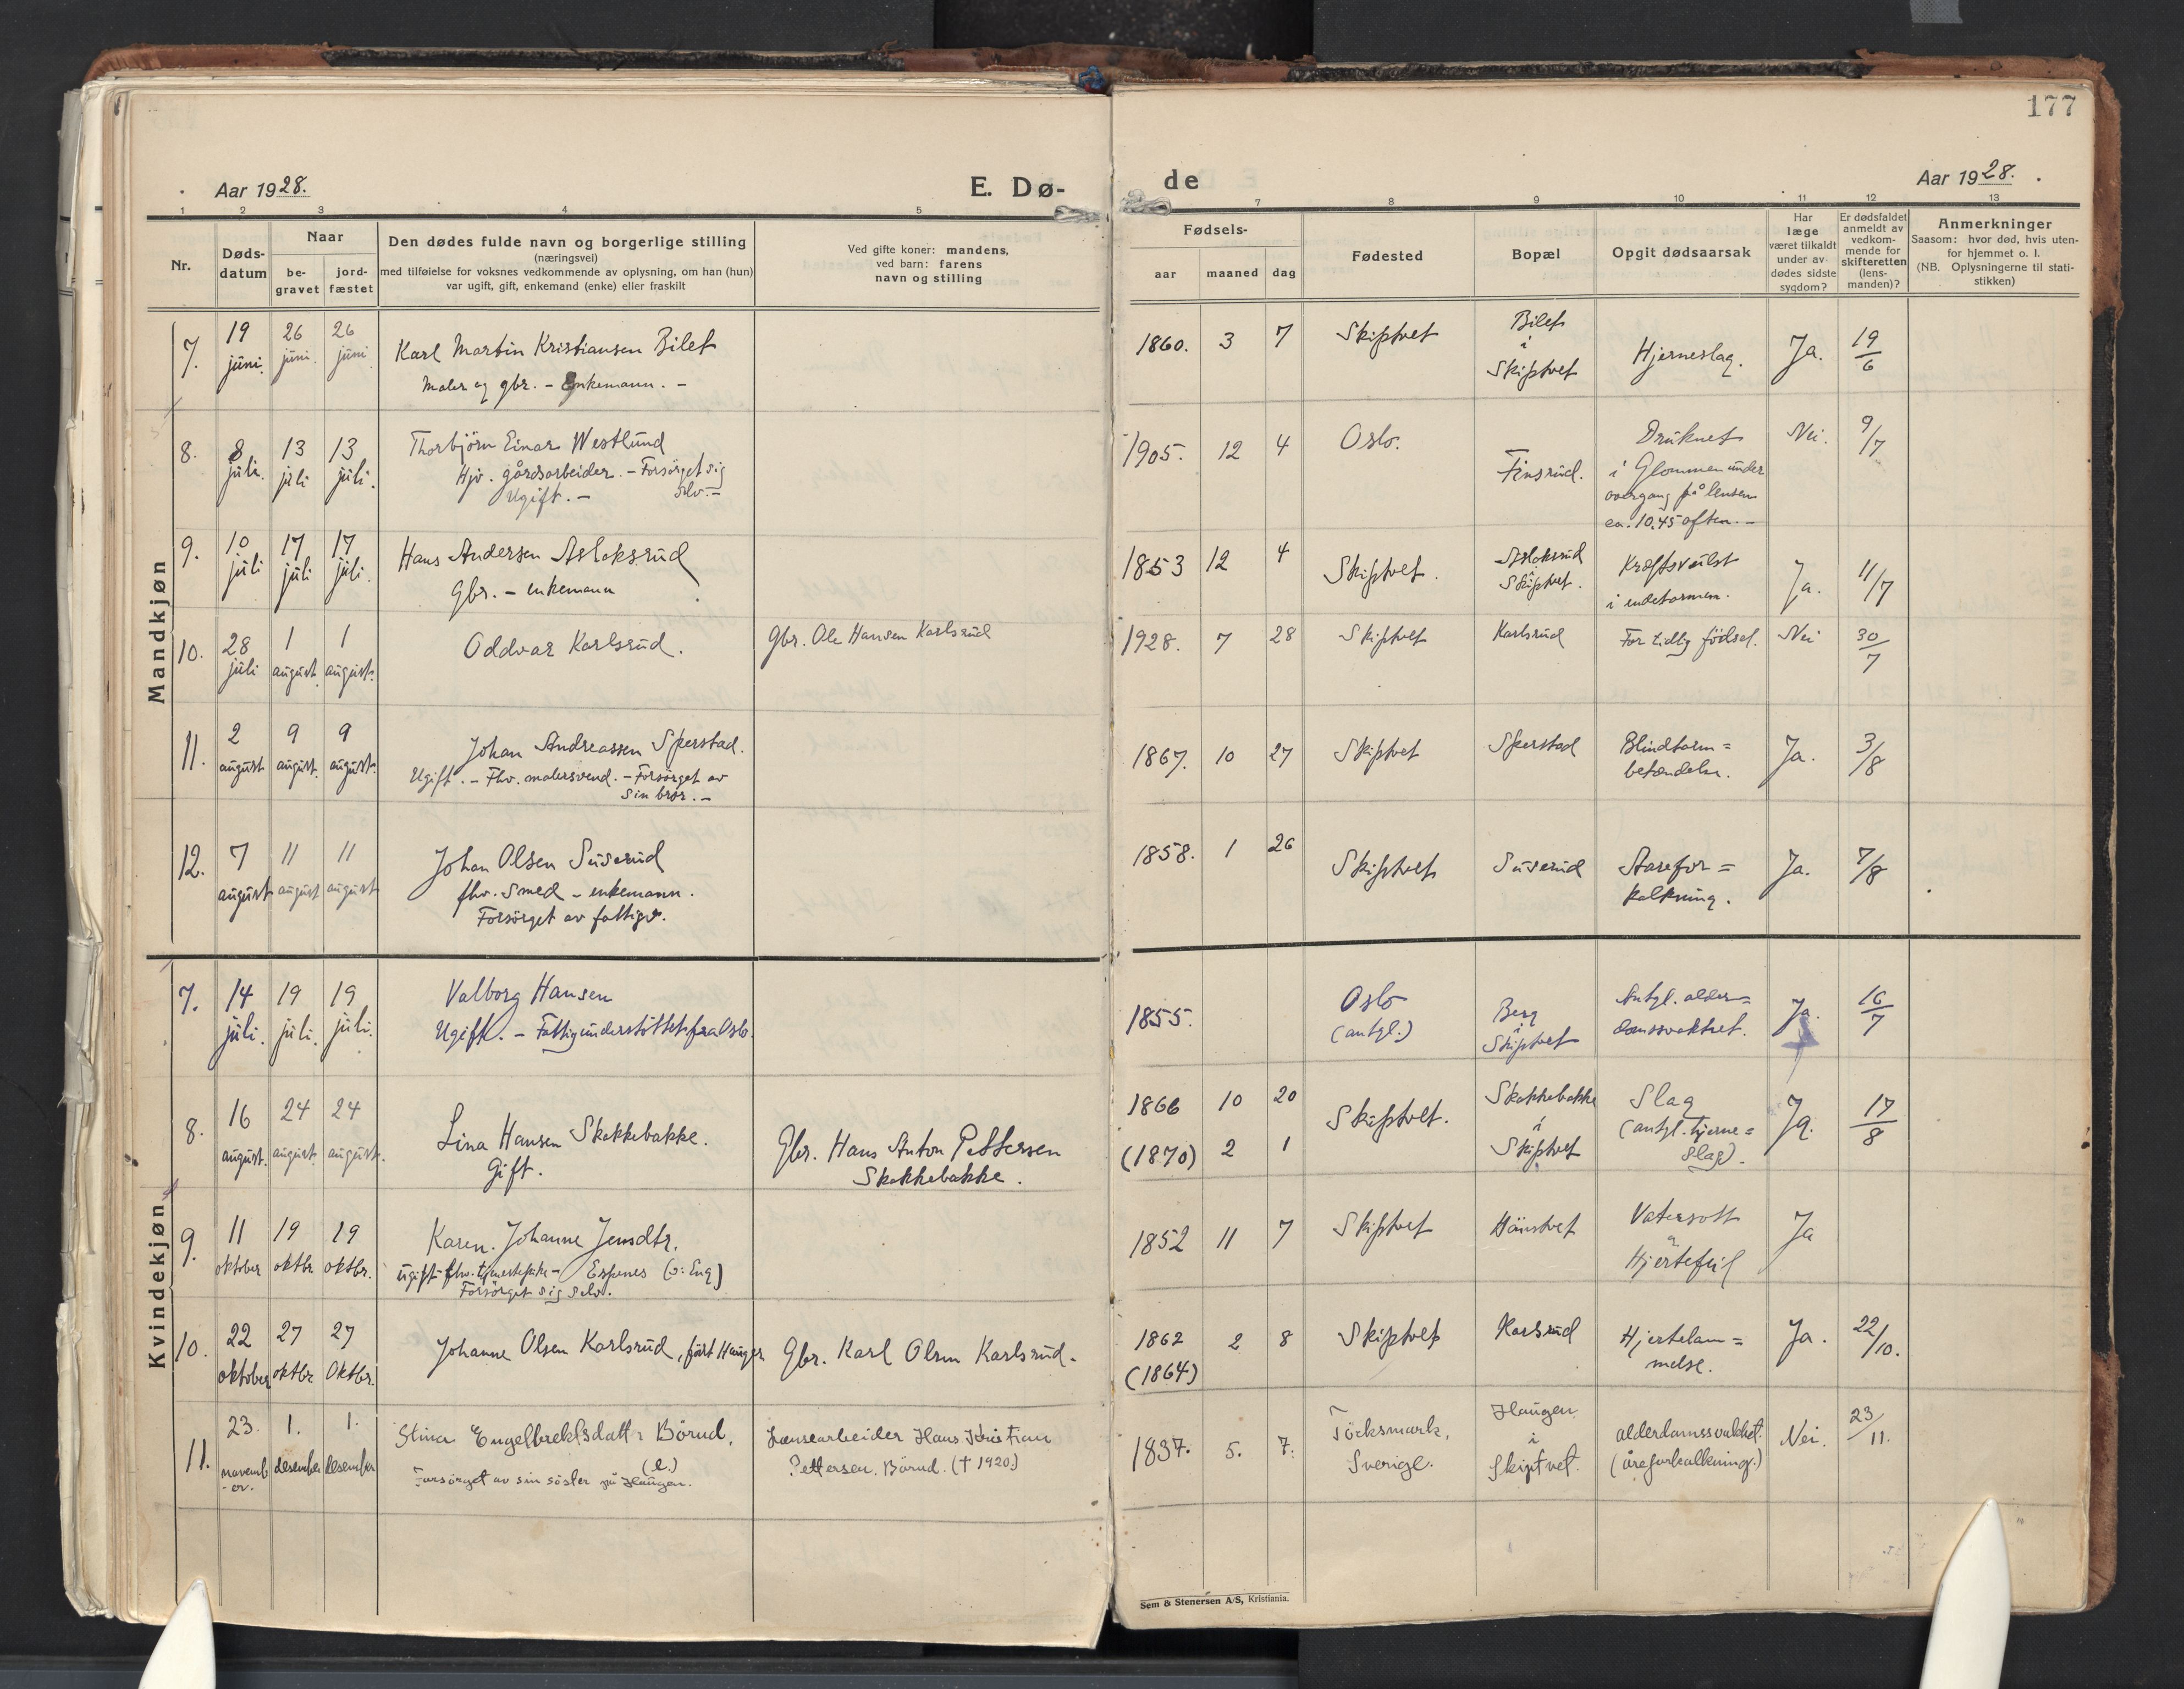 177
Aar 1928.
E. Dø-
de
Aar 1928.
1 2 3 4 5
7 8 9 10 11 12 13
Nr.
Døds-
datum
Naar
be-
gravet
jord-
fæstet
Den dødes fulde navn og borgerlige stilling
(næringsvei)
med tilføielse for voksnes vedkommende av oplysning, om han (hun)
var ugift, gift, enkemand (enke) eller fraskilt
Ved gifte koner: mandens,
ved barn: farens
navn og stilling
Fødsels-
aar maaned dag
Fødested
Bopæl
Opgit dødsaarsak
Har
læge
været tilkaldt
under av-
dødes sidste
sygdom?
Er dødsfaldet
anmeldt av
vedkom-
mende for
skifteretten
(lens-
manden)?
Anmerkninger
Saasom: hvor død, hvis uten-
for hjemmet o. l.
(NB. Oplysningerne til stati-
stikken)
Mandkjøn
7. 19 juni. 26 juni. 26 juni
Karl Martin Kristiansen Bilet
Maler og gbr. - Enkemann. -
1860. 3 7 Skiptvet
Bilet
i
Skiptvet
Hjerneslag. Ja. 19/6
8. 8 juli. 13 juli 13 juli.
Thorbjörn Einar Westlund
Hjv. gårdsarbeider. - Forsörget sig
Ugift. - selv. -
1905. 12 4 Oslo. Finsrud.
Druknet
i Glommen under
overgang på lensen
ca. 10.45 aften. -
Nei. 9/7
9. 10 juli 17 juli 17 juli.
Hans Andersen Asloksrud
Gbr. - enkemann
1853 12 4 Skiptvet.
Asloksrud
i
Skiptvet.
Kræftsvulst
i endetarmen.
Ja. 11/7
10. 28 juli 1 august. 1 august.
Oddvar Karlsrud.
Gbr. Ole Hansen Karlsrud
1928. 7 28 Skiptvet Karlsrud For tidlig födsel. Nei 30/7
11. 2 august 9 august. 9 august.
Johan Andreassen Sperstad.
Ugift. - Fhv. malersvend. - Forsörget av
sin bror. -
1867. 10 27 Skiptvet Sperstad
Blindtarm=
betændelse.
Ja. 3/8
12. 7 august 11 august 11 august
Johan Olsen Suserud
fhv. Smed - enkemann.
Forsörget av fattigv.
1858. 1 26 Skiptvet Suserud
Aarefor=
kalkning.
Ja. 7/8
Kvindekjøn
7. 14 juli. 19 juli. 19 juli.
Valborg Hansen
Ugift. - Fattigunderstöttet fra Oslo.
1855.
Oslo
(antgl.)
Berg
i
Skiptvet
Antgl. alder=
domssvakhet.
Ja. 16/7
8. 16 august. 24 august. 24 august.
Lina Hansen Skakkebakke.
Gift.
Gbr. Hans Anton Pettersen
Skakkebakke.
1866 10 20
(1870) 2 1
Skiptvet.
Skakkebakke
i
Skiptvet
Slag
(antgl. hjerne=
slag).
Ja. 17/8
9. 11 oktober 19 oktbr 19 oktbr.
Karen. Johanne Jensdtr.
Ugift fhv. tjenestepike - Espenes (ɔ: Eng)
Forsörget sig selv.
1852 11 7 Skiptvet
Vatersott
og
Hjertefeil
Ja
10. 22 oktober 27 oktbr 27 Oktbr.
Johanne Olsen Karlsrud, födt Haugen
Gbr. Karl Olsen Karlsrud.
1862 2 8
(1864)
Skiptvet Karlsrud
Hjertelam=
melse.
Ja. 22/10.
11. 23. november. 1. desember 1. desember
Stina Engelbrektsdatter Börud.
(e.)
Forsörget av sin söster på Haugen.
Lensearbeider Hans Kristian
Pettersen. Börud. († 1920.)
1837. 5. 7.
Töcksmark,
Sverige.
Haugen
i
Skiptvet.
alderdomssvakhet.
(åreforkalkning.)
Nei. 23/11.
Sem & Stenersen A/S, Kristiania.